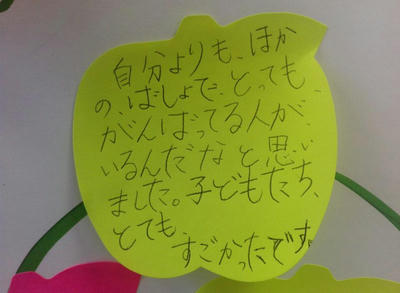 自分よりも、ほか
の、ばしょで、とっても、
がんばってる人が、
いるんだなと思い
ました。子どもたち、
とても、
すごかったです。